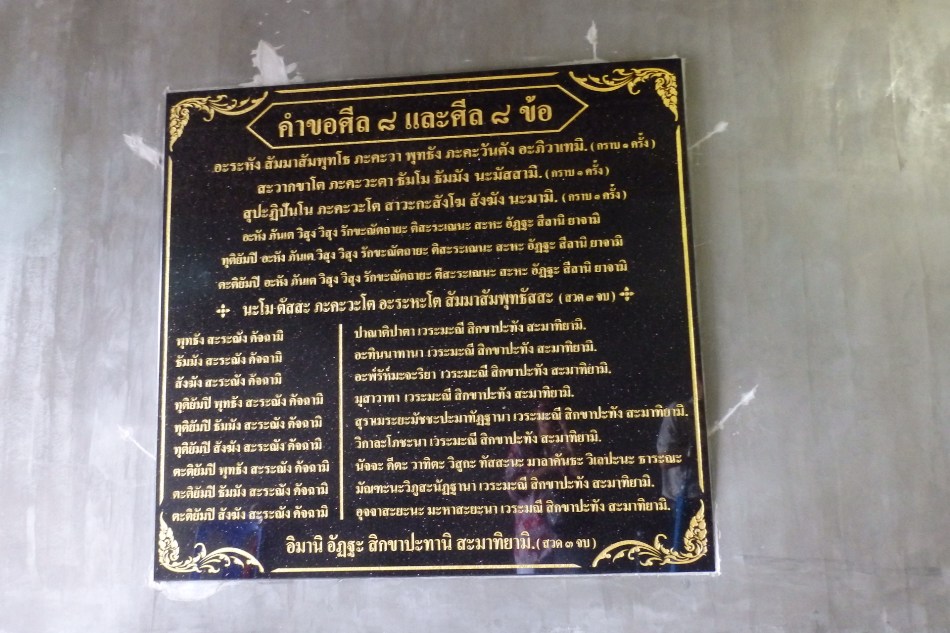 คำขอศีล ๘ และศีล ๘ ข้อ
อะระหัง สัมมาสัมพุทโธ ภะคะวา พุทธัง ภะคะวันตัง อะภิวาเทมิ. (กราบ ๑ ครั้ง)
สะวากขาโต ภะคะวะตา ธัมโม ธัมมัง นะมัสสามิ. (กราบ ๑ ครั้ง)
สุปะฏิปันโน ภะคะวะโต สาวะกะสังโฆ สังฆัง นะมามิ. (กราบ ๑ ครั้ง)
อะหัง ภันเต วิสุง วิสุง รักขะณัตถายะ ติสะระเณนะ สะหะ อัฏฐะ สีลานิ ยาจามิ
ทุติยัมปิ อะหัง ภันเต วิสุง วิสุง รักขะณัตถายะ ติสะระเณนะ สะหะ อัฏฐะ สีลานิ ยาจามิ
ตะติยัมปิ อะหัง ภันเต วิสุง วิสุง รักขะณัตถายะ ติสะระเณนะ สะหะ อัฏฐะ สีลานิ ยาจามิ
นะโม ตัสสะ ภะคะวะโต อะระหะโต สัมมาสัมพุทธัสสะ (สวด ๓ จบ)
พุทธัง สะระณัง คัจฉามิ
ธัมมัง สะระณัง คัจฉามิ
สังฆัง สะระณัง คัจฉามิ
ทุติยัมปิ พุทธัง สะระณัง คัจฉามิ
ทุติยัมปิ ธัมมัง สะระณัง คัจฉามิ
ทุติยัมปิ สังฆัง สะระณัง คัจฉามิ
ตะติยัมปิ พุทธัง สะระณัง คัจฉามิ
ตะติยัมปิ ธัมมัง สะระณัง คัจฉามิ
ตะติยัมปิ สังฆัง สะระณัง คัจฉามิ
ปาณาติปาตา เวระมะณี สิกขาปะทัง สะมาทิยามิ.
อะทินนาทานา เวระมะณี สิกขาปะทัง สะมาทิยามิ.
อะพ๎รัห๎มะจะริยา เวระมะณี สิกขาปะทัง สะมาทิยามิ.
มุสาวาทา เวระมะณี สิกขาปะทัง สะมาทิยามิ.
สุราเมระยะมัชชะปะมาทัฏฐานา เวระมะณี สิกขาปะทัง สะมาทิยามิ.
วิกาละโภชะนา เวระมะณี สิกขาปะทัง สะมาทิยามิ.
นัจจะ คีตะ วาทิตะ วิสูกะ ทัสสะนะ มาลาคันธะ วิเลปะนะ ธาระณะ
มัณฑะนะวิภูสะนัฏฐานา เวระมะณี สิกขาปะทัง สะมาทิยามิ.
อุจจาสะยะนะ มะหาสะยะนา เวระมะณี สิกขาปะทัง สะมาทิยามิ.
อิมานิ อัฏฐะ สิกขาปะทานิ สะมาทิยามิ. (สวด ๓ จบ)